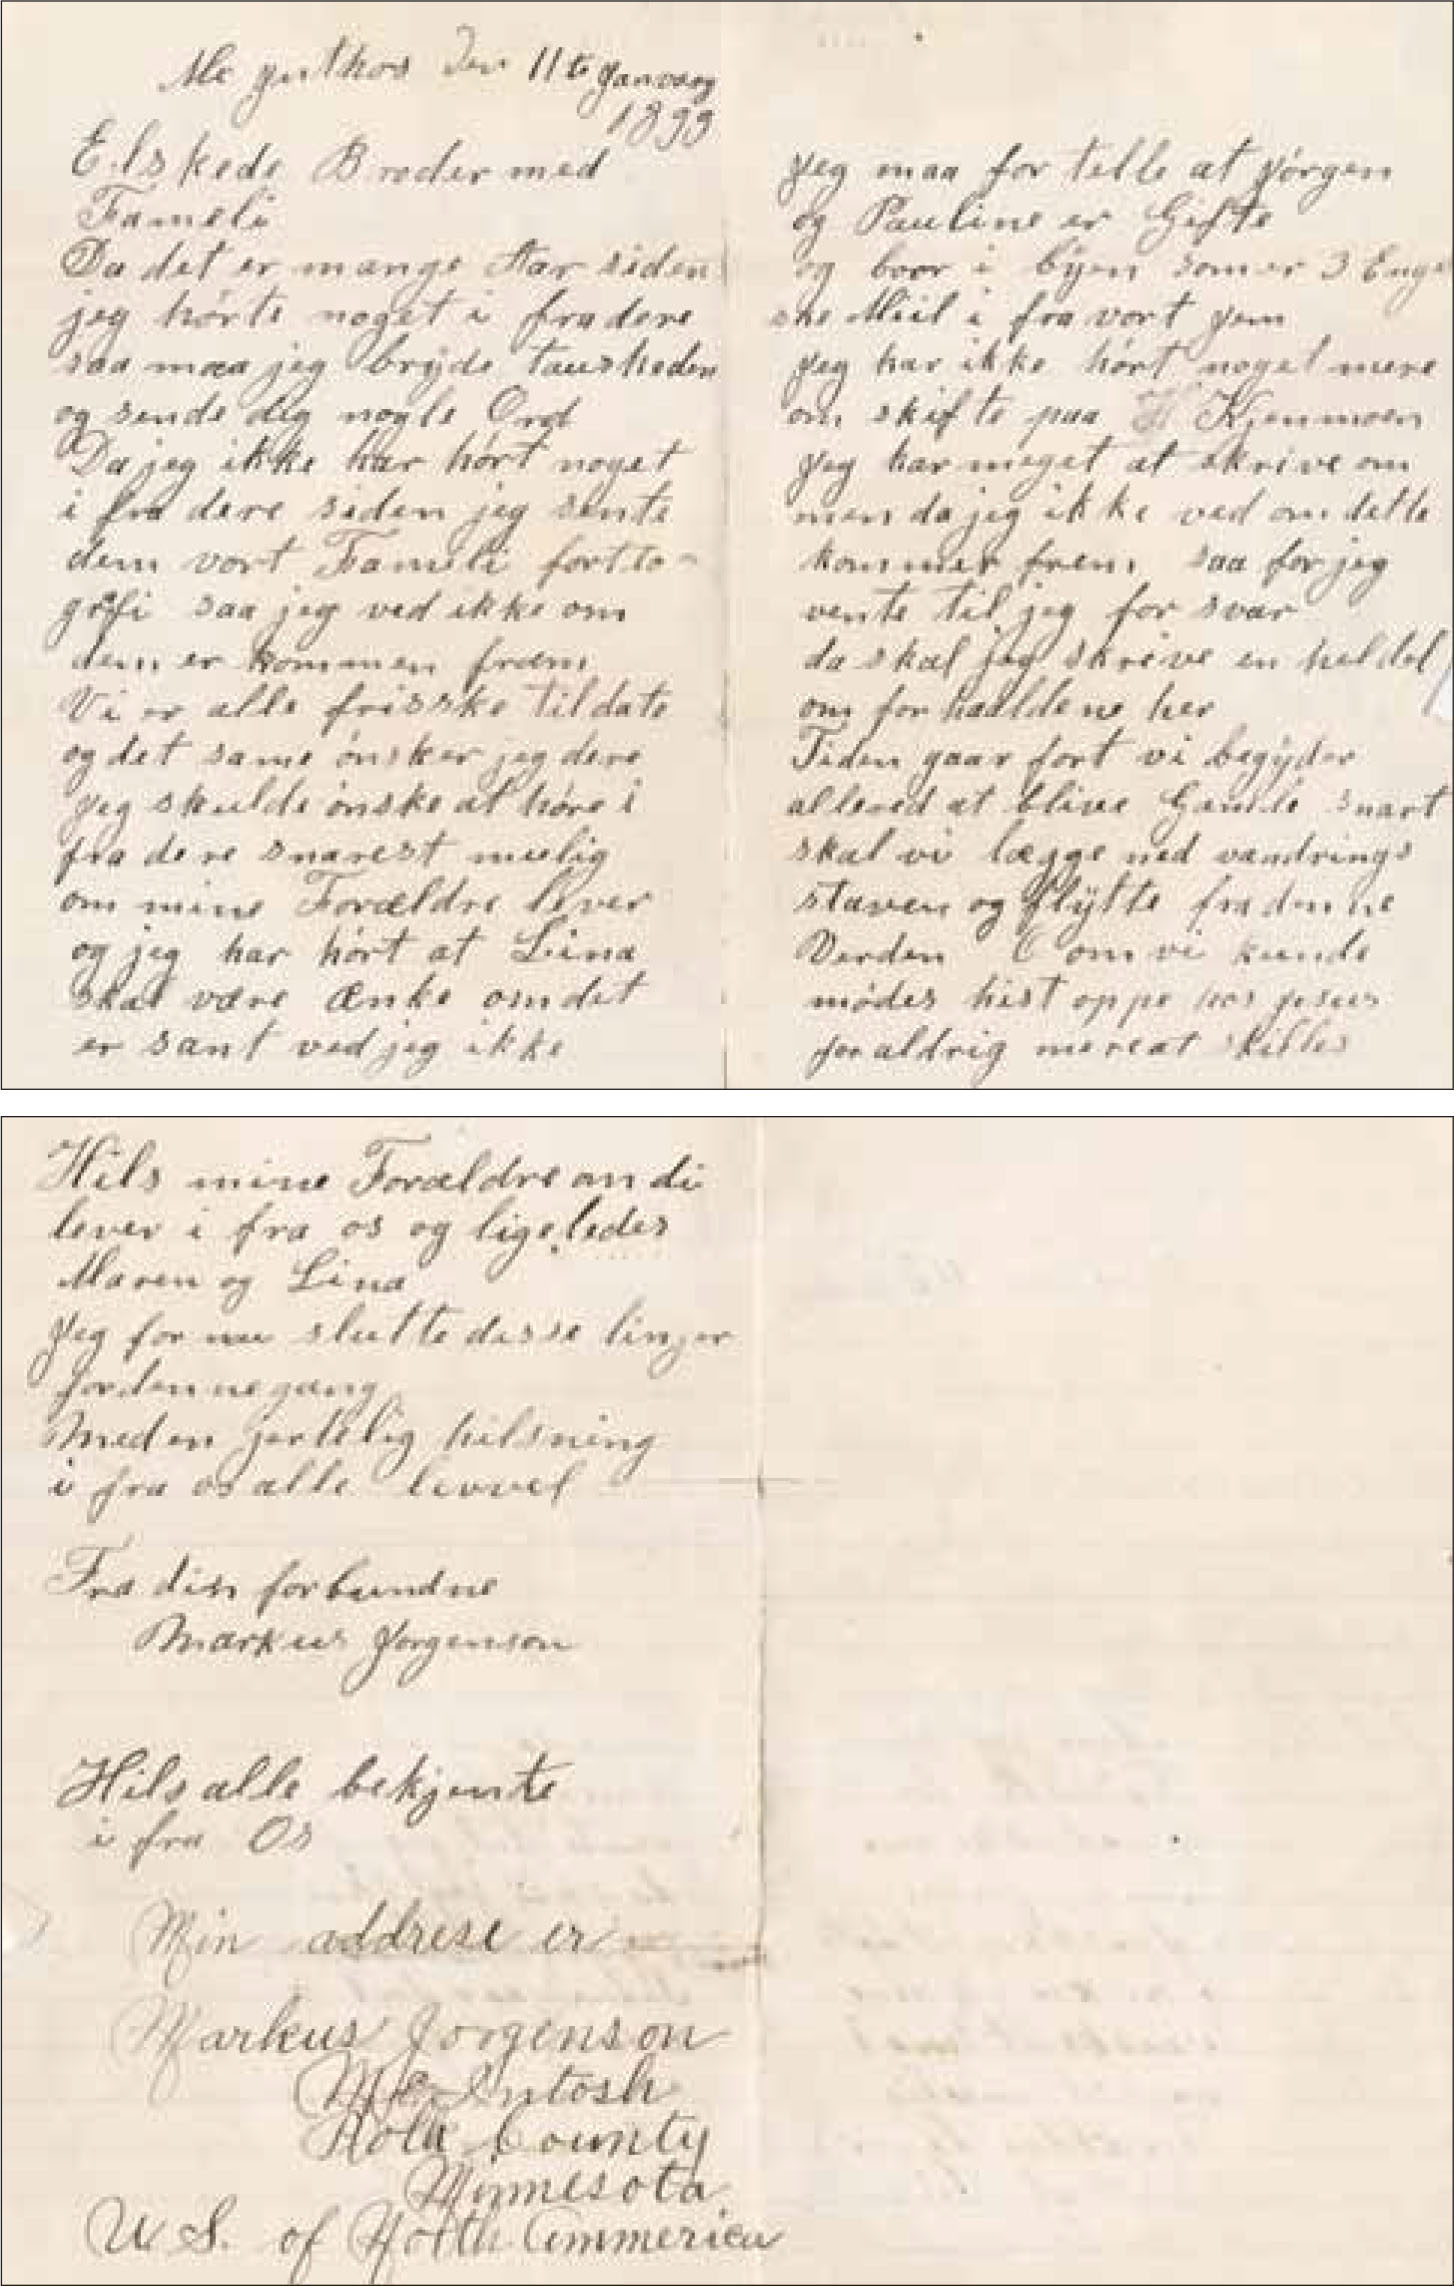 Mc ynthos Den 11te Januvary
1899
Elskede Broder med
Fameli
Da det er mange Aar siden
jeg hørte noget i fra dere
saa maa jeg bryde tausheden
og sende dig nogle Ord
Da jeg ikke har hørt noget
i fra dere siden jeg sente
dem vort Fameli fortto-
grefi saa jeg ved ikke om
dem er kommen fræm
Vi er alle friske til date
og det same ønsker jeg dere
Jeg skulde ønske at høre i
fra dere snarest muelig
om mine Forældre lever
og jeg har hørt at Lina
skal være Ænke om det
er sant ved jeg ikke
Jeg maa for telle at Jørgen
og Pauline er Gifte
og boor i byen som er 3 Enge
ske Miil i fra vort Jem
Jeg har ikke hørt noget mere
om skifte paa Kjenmoen
Jeg har meget at skrive om
men da jeg ikke ved om dette
kommer frem saa for jeg
vente til jeg for svar
da skal jeg skrive en heldel
om for haaldene her
Tiden gaar fort vi begyder
allered at blive Gamle snart
skal vi lægge ned vandrings
staven og flytte fra denne
Verden O om vi kunde
mødes hist oppe hos jesus
for aldrig mere at skilles
Hils mine Forældre om di
lever i fra os og ligeledes
Maren og Lina
Jeg for nu slutte disse linjer
for denne gang
Med en jertelig hilsning
i fra os alle levvel
Fra din forbundne
Markus Jorgenson
Hils alle bekjente
i fra Os
Min addrese er
Markus Jorgenson
Mc Intosh
Polk County
Minnesota
U S. of North Ammerica